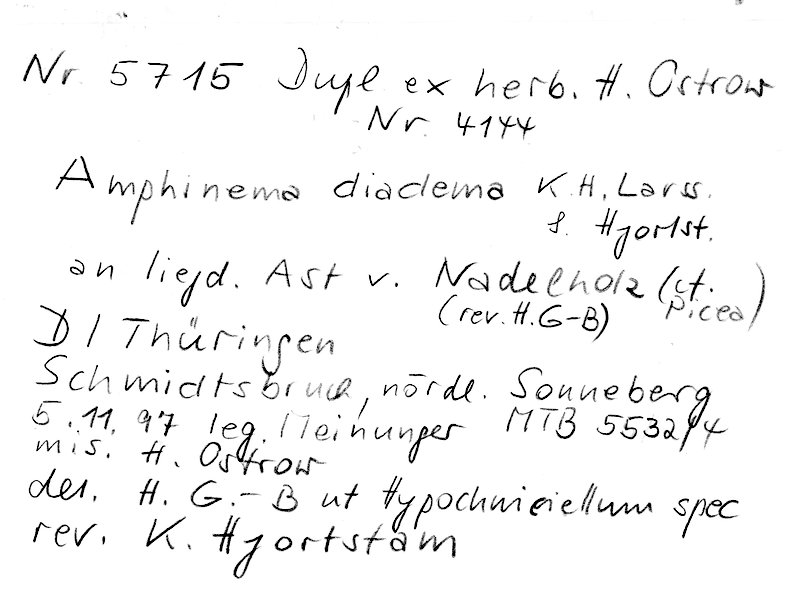 Nr. 5715 Dupl ex herb. H. Ostrow
Nr. 4144
Amphinema diadema K.H. Larss.
& Hjortst.
an liegd. Ast v. Nadelholz (cf. Picea)
(rev. H. G-B)
D / Thüringen
Schmidtsbruch, nördl. Sonneberg
5.11.97 leg. Meinunger MTB 5532/4
mis. H. Ostrow
det. H. G.-B ut Hypochniciellum spec
rev. K. Hjortstam